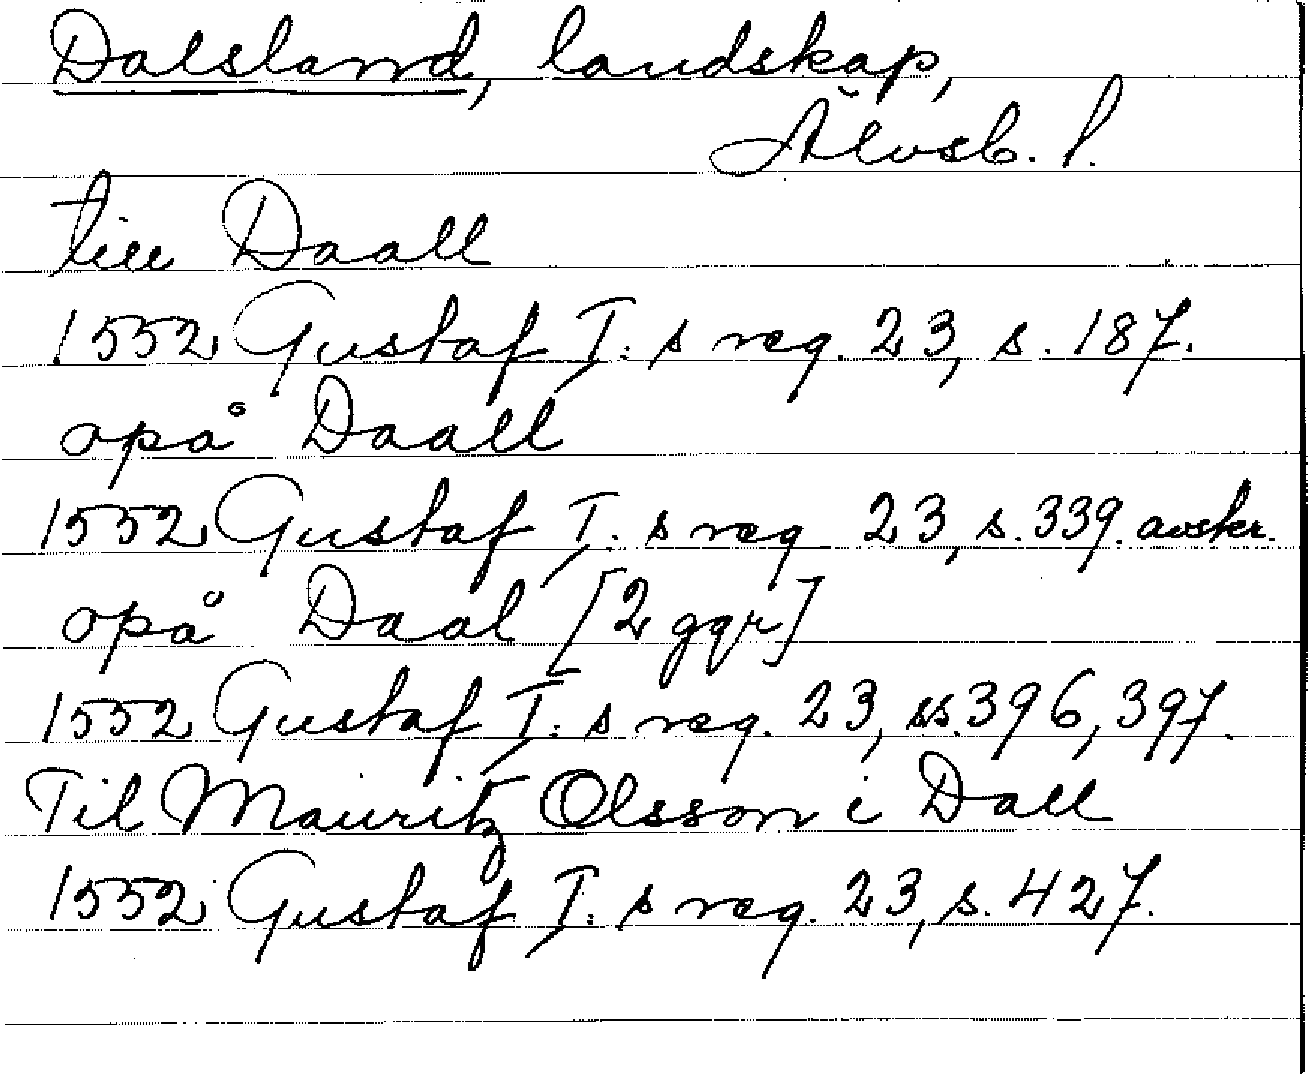 Dalsland, landskap,
Älvsb. l.
till Daall
1552 Gustaf I: s reg. 23, s. 187.
opå Daall
1552 Gustaf I: s reg 23, s. 339. avskr.
opå Daal [2 ggr]
1552 Gustaf I: s reg. 23, ss. 396, 397.
Til Mauritz Olsson i Dall
1552 Gustaf I: s reg. 23, s. 427.